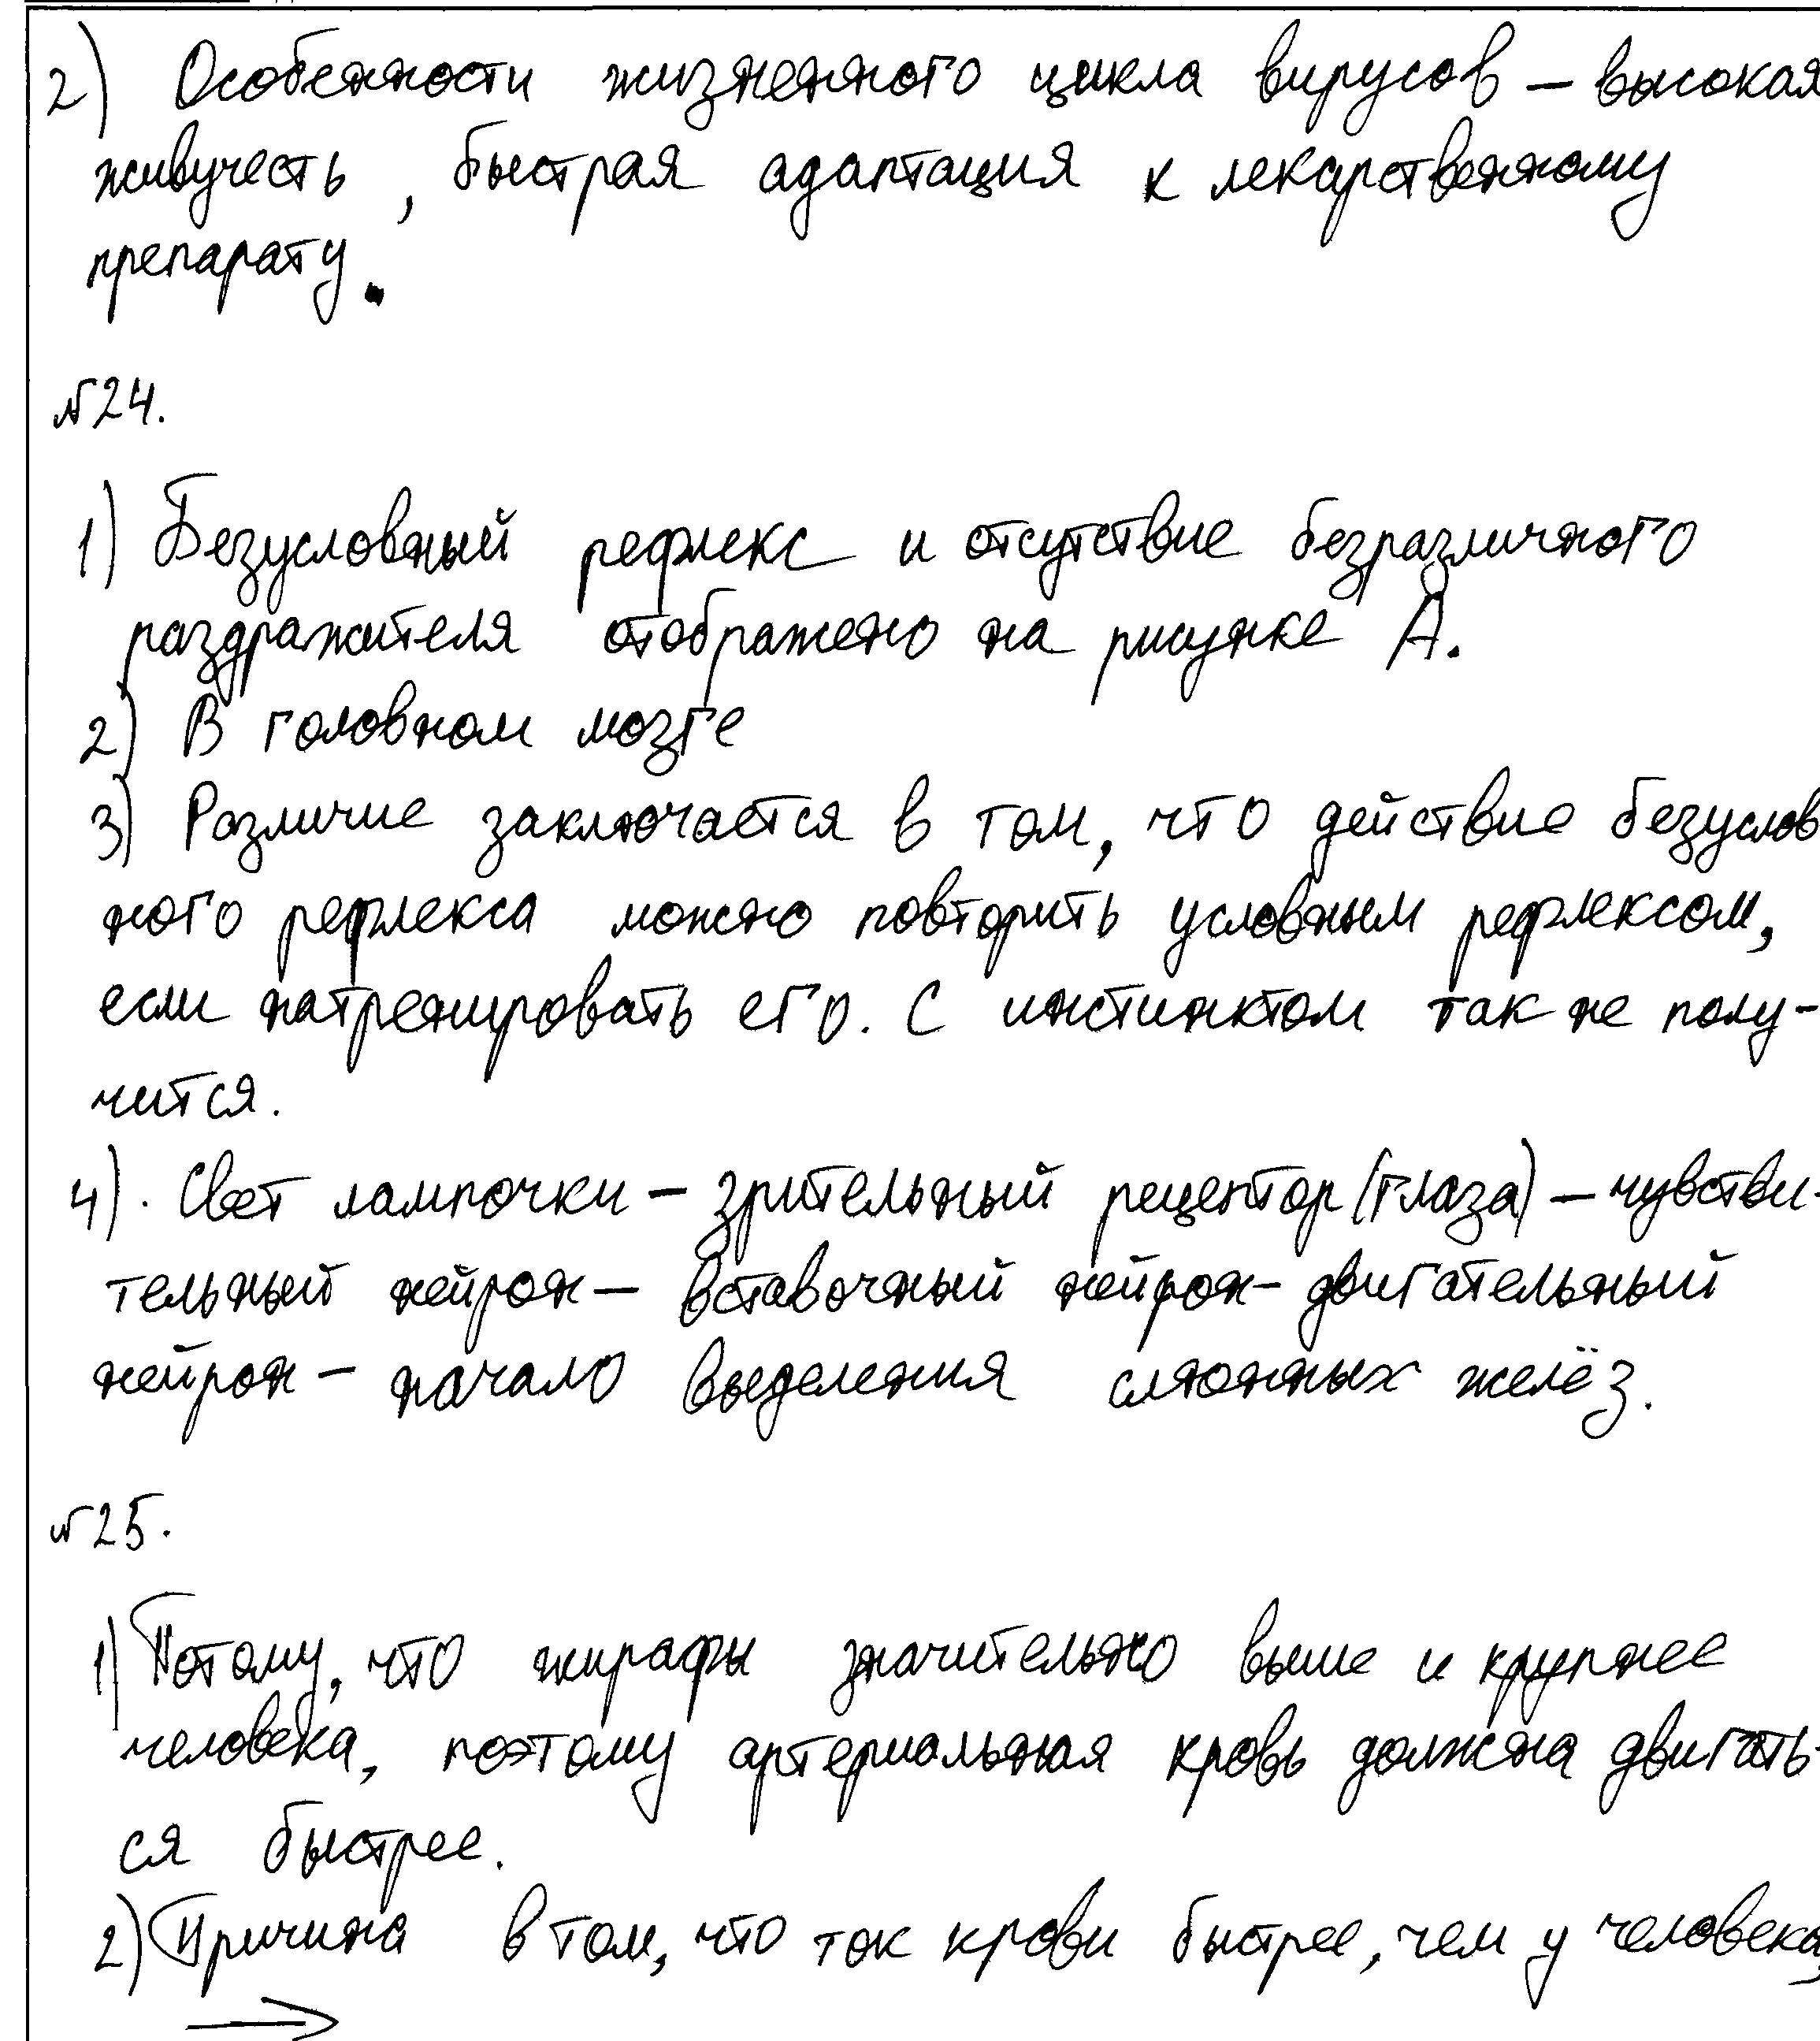 2) Особенности жизненного цикла вирусов – высокая
живучесть, быстрая адаптация к лекарственному
препарату.
№24.
1) Безусловный рефлекс и отсутствие безразличного
раздражителя отображено на рисунке А.
2) В головном мозге
3) Различие заключается в том, что действие безуслов
ного рефлекса можно повторить условным рефлексом,
если натренировать его. С инстинктом так не полу-
чится.
4). Свет лампочки – зрительный рецептор (глаза) – чувстви-
тельный нейрон – вставочный нейрон – двигательный
нейрон – начало выделения слюнных желёз.
№25.
1) Потому, что жирафы значительно выше и крупнее
человека, поэтому артериальная кровь должна двигать-
ся быстрее.
2) Причина в том, что ток крови быстрее, чем у человека,